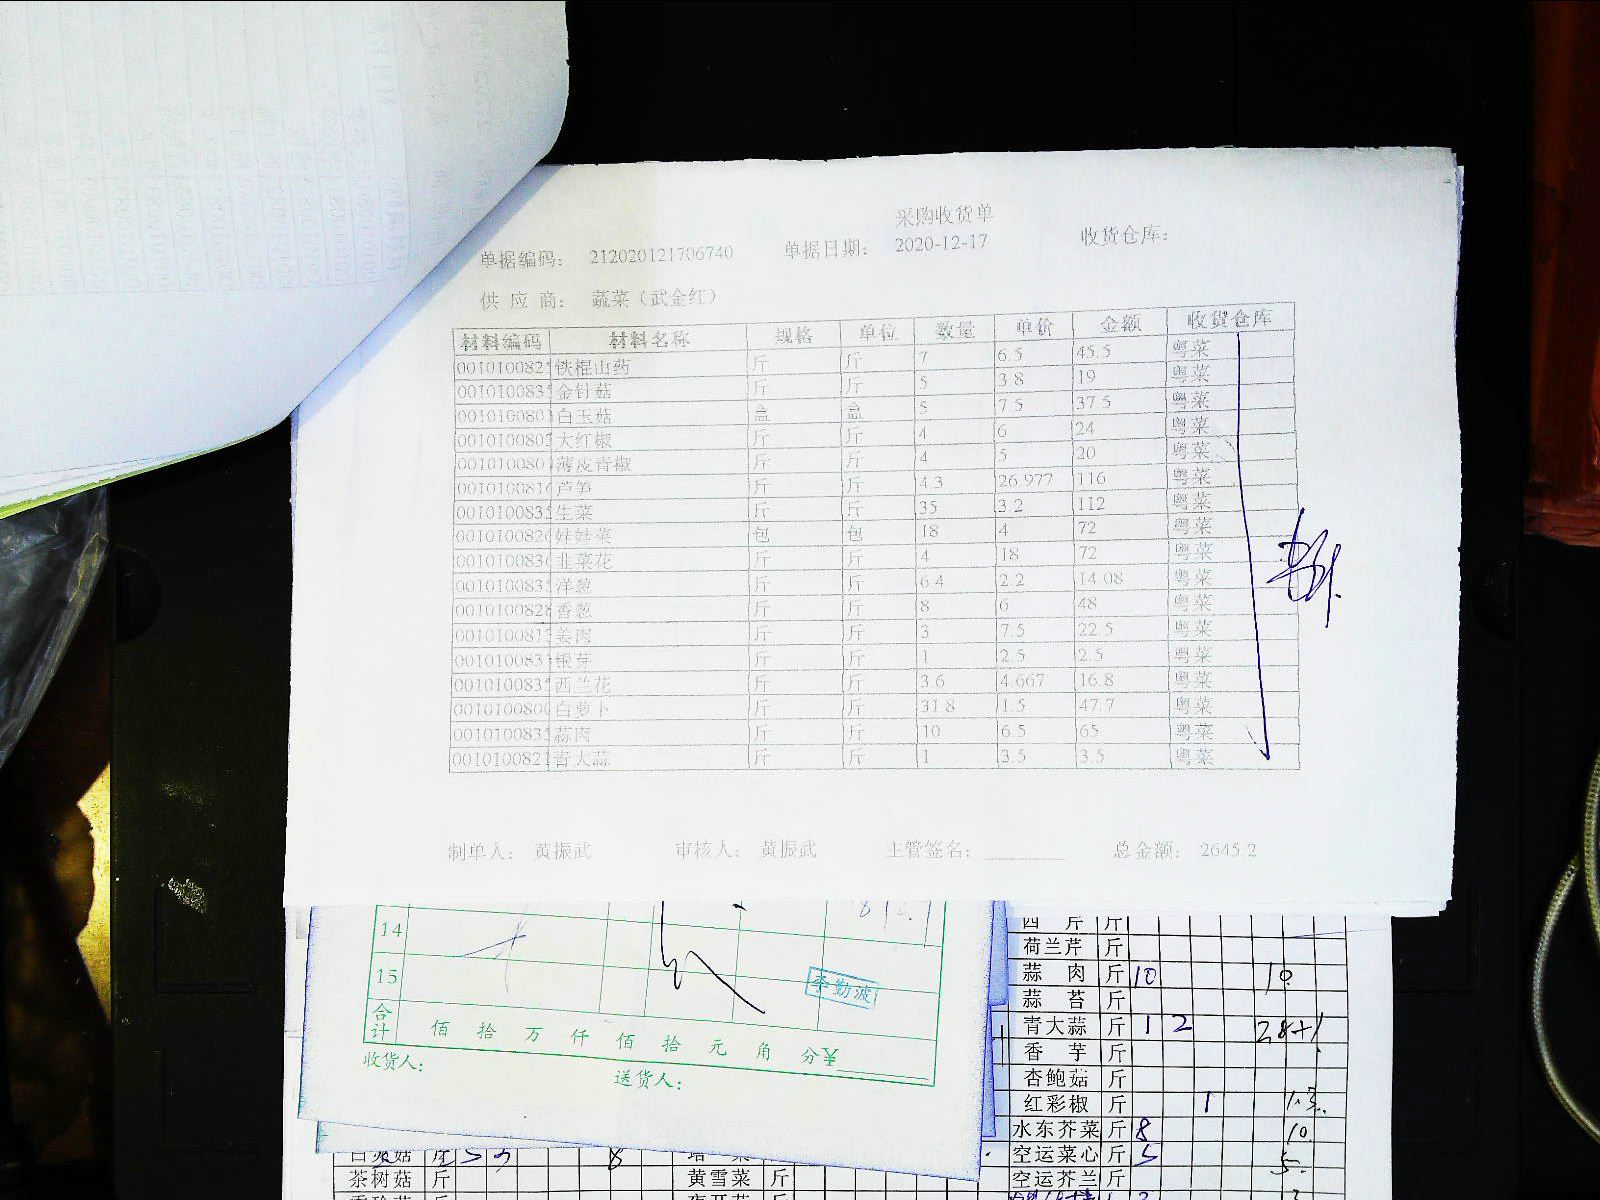 采购收货单
单据编码： 212020121706740 单据日期： 2020-12-17 收货仓库：
供 应 商： 蔬菜（武金红）
材料编码 材料名称 规格 单位 数量 单价 金额 收货仓库
001010082 铁棍山药 斤 斤 7 6.5 45.5 粤菜
001010083 金针菇 斤 斤 5 3.8 19 粤菜
001010080 白玉菇 盒 盒 5 7.5 37.5 粤菜
001010080 大红椒 斤 斤 4 6 24 粤菜
001010080 薄皮青椒 斤 斤 4 5 20 粤菜
001010081 芦笋 斤 斤 4.3 26.977 116 粤菜
001010083 生菜 斤 斤 35 3.2 112 粤菜
001010082 娃娃菜 包 包 18 4 72 粤菜
001010083 韭菜花 斤 斤 4 18 72 粤菜
001010083 洋葱 斤 斤 6.4 2.2 14.08 粤菜
001010082 香葱 斤 斤 8 6 48 粤菜
001010081 姜肉 斤 斤 3 7.5 22.5 粤菜
001010083 银芽 斤 斤 1 2.5 2.5 粤菜
001010083 西兰花 斤 斤 3.6 4.667 16.8 粤菜
001010080 白萝卜 斤 斤 31.8 1.5 47.7 粤菜
001010083 蒜肉 斤 斤 10 6.5 65 粤菜
001010082 青大蒜 斤 斤 1 3.5 3.5 粤菜
制单人： 黄振武 审核人： 黄振武 主管签名： 总金额： 2645.2
14
15
李勤波
合计 佰 拾 万 仟 佰 拾 元 角 分¥
收货人： 送货人：
西 芹 斤
荷兰芹 斤
蒜 肉 斤 10 10
蒜 苔 斤
青大蒜 斤 1 2 2.8+1
香 芋 斤
杏鲍菇 斤
红彩椒 斤 1
水东芥菜 斤 8 10
空运菜心 斤 5 5
空运芥兰 斤
茶树菇 斤
黄雪菜 斤